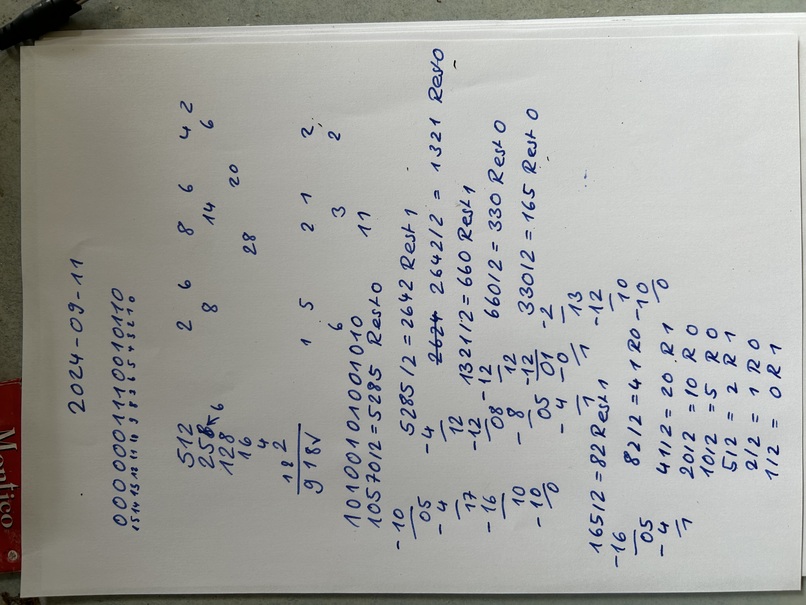 Montico
2024-09-11
0000001110010110
15 14 13 12 11 10 9 8 7 6 5 4 3 2 1 0
512 2 6 8 6 4 2
256 6 8 14 6
128 20
16 28
4
2
1 1 2 1 5 2 1 2
918✓ 6 3 2
10100101001010 11
10570/2=5285 Rest 0
-10 5285/2=2642 Rest 1
05 -4 2624 2642/2 = 1321 Rest 0
-4 12
17 -12 1321/2=660 Rest 1
-16 08 -12 660/2=330 Rest 0
10 -8 12
-10 05 -12 330/2=165 Rest 0
0 -4 01 -2
1 -0 13
1 -12
165/2=82 Rest 1 10
-16 82/2=41 R0 -10
05 0
-4 41/2=20 R 1
1 20/2=10 R 0
10/2=5 R 0
5/2 = 2 R 1
2/2 = 1 R 0
1/2 = 0 R 1